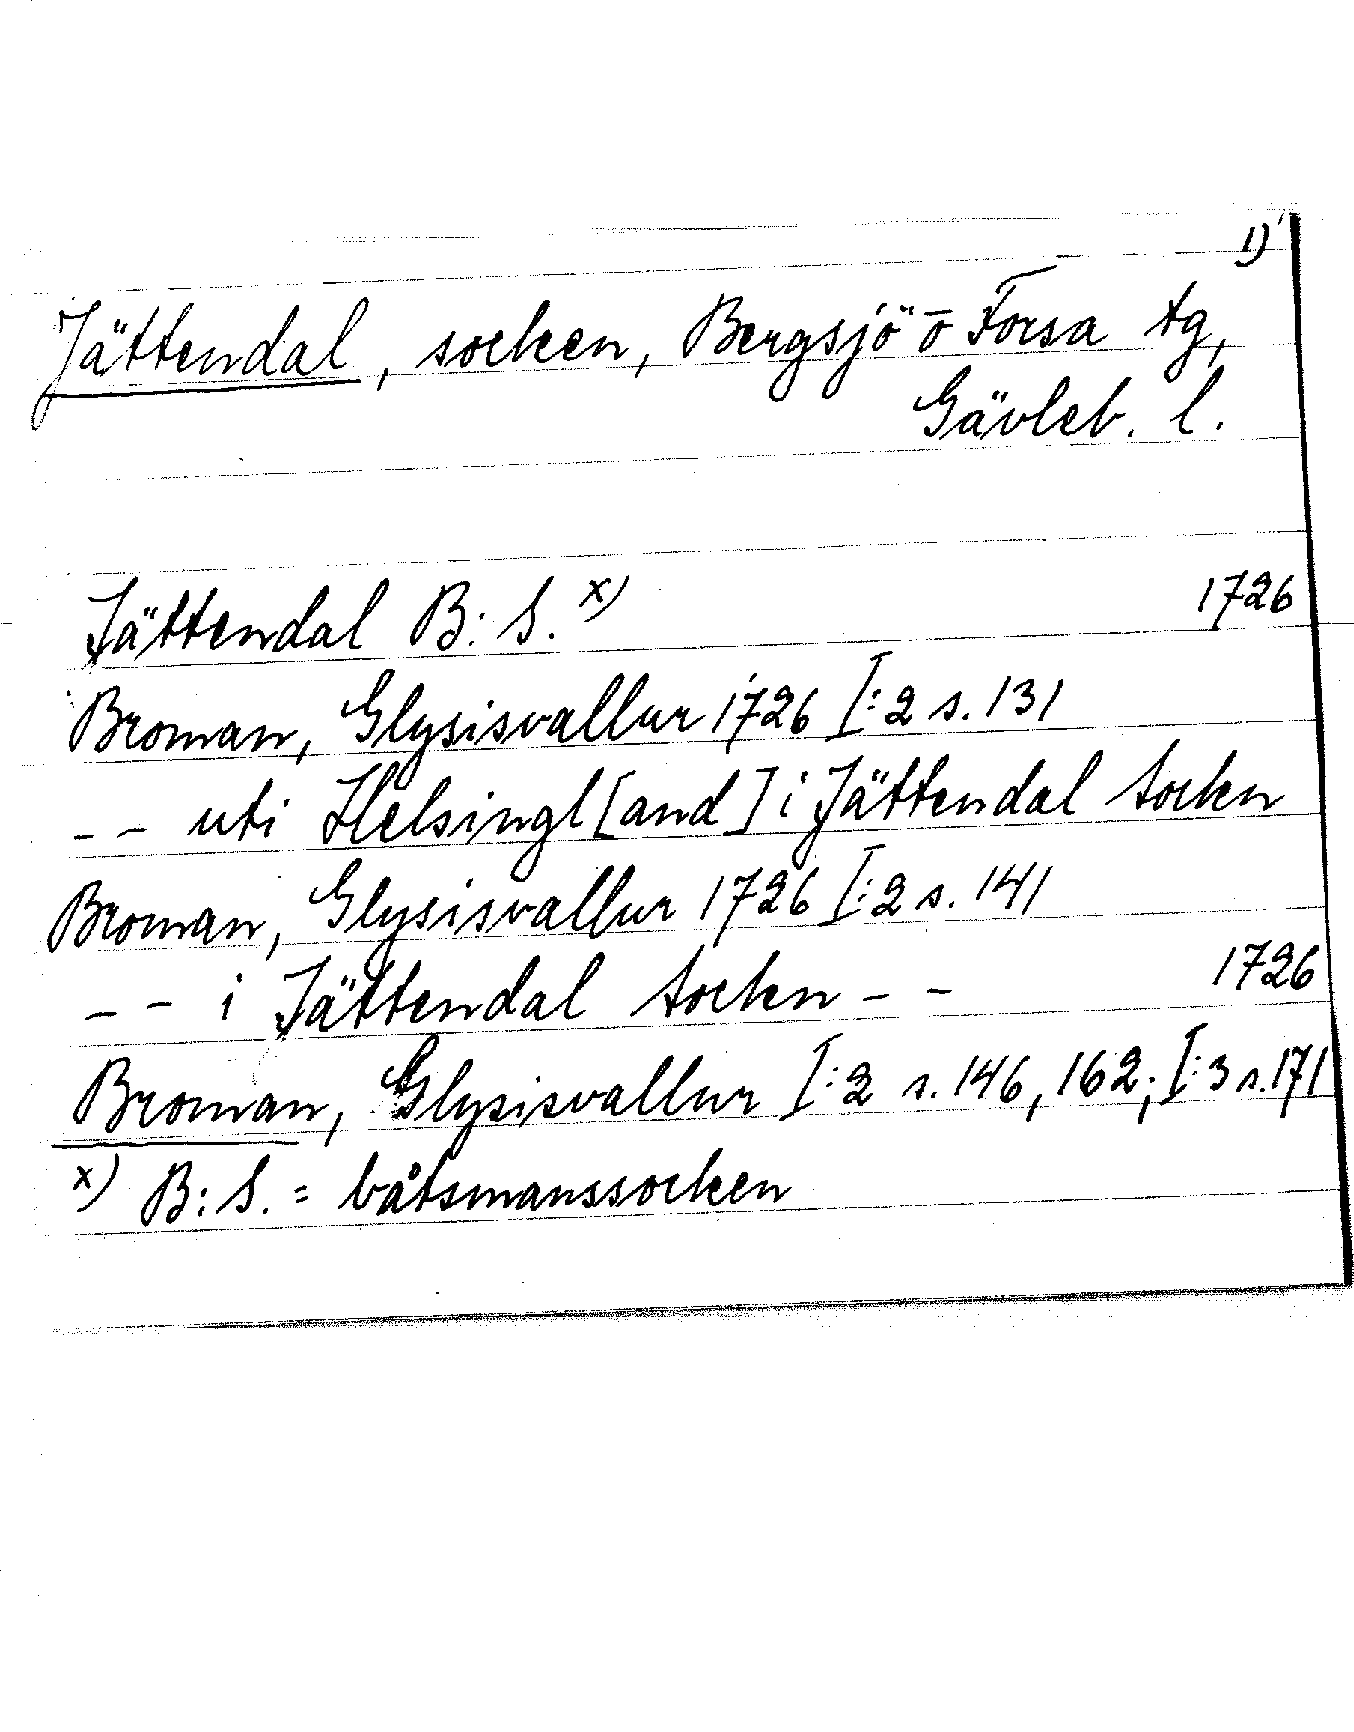 1)
Jättendal, socken, Bergsjö o Forsa tg,
Gävleb. l.
Jättendal B: S. x) 1726
Broman, Glysisvallur 1726 I:2 s. 131
- - uti Helsingl[and] i Jättendal Sockn
Broman, Glysisvallur 1726 I:2 s. 141
- - i Jättendal Sockn - - 1726
Broman, Glysisvallur I:2 s. 146, 162; I:3 s. 171
x) B: S. = båtsmanssocken